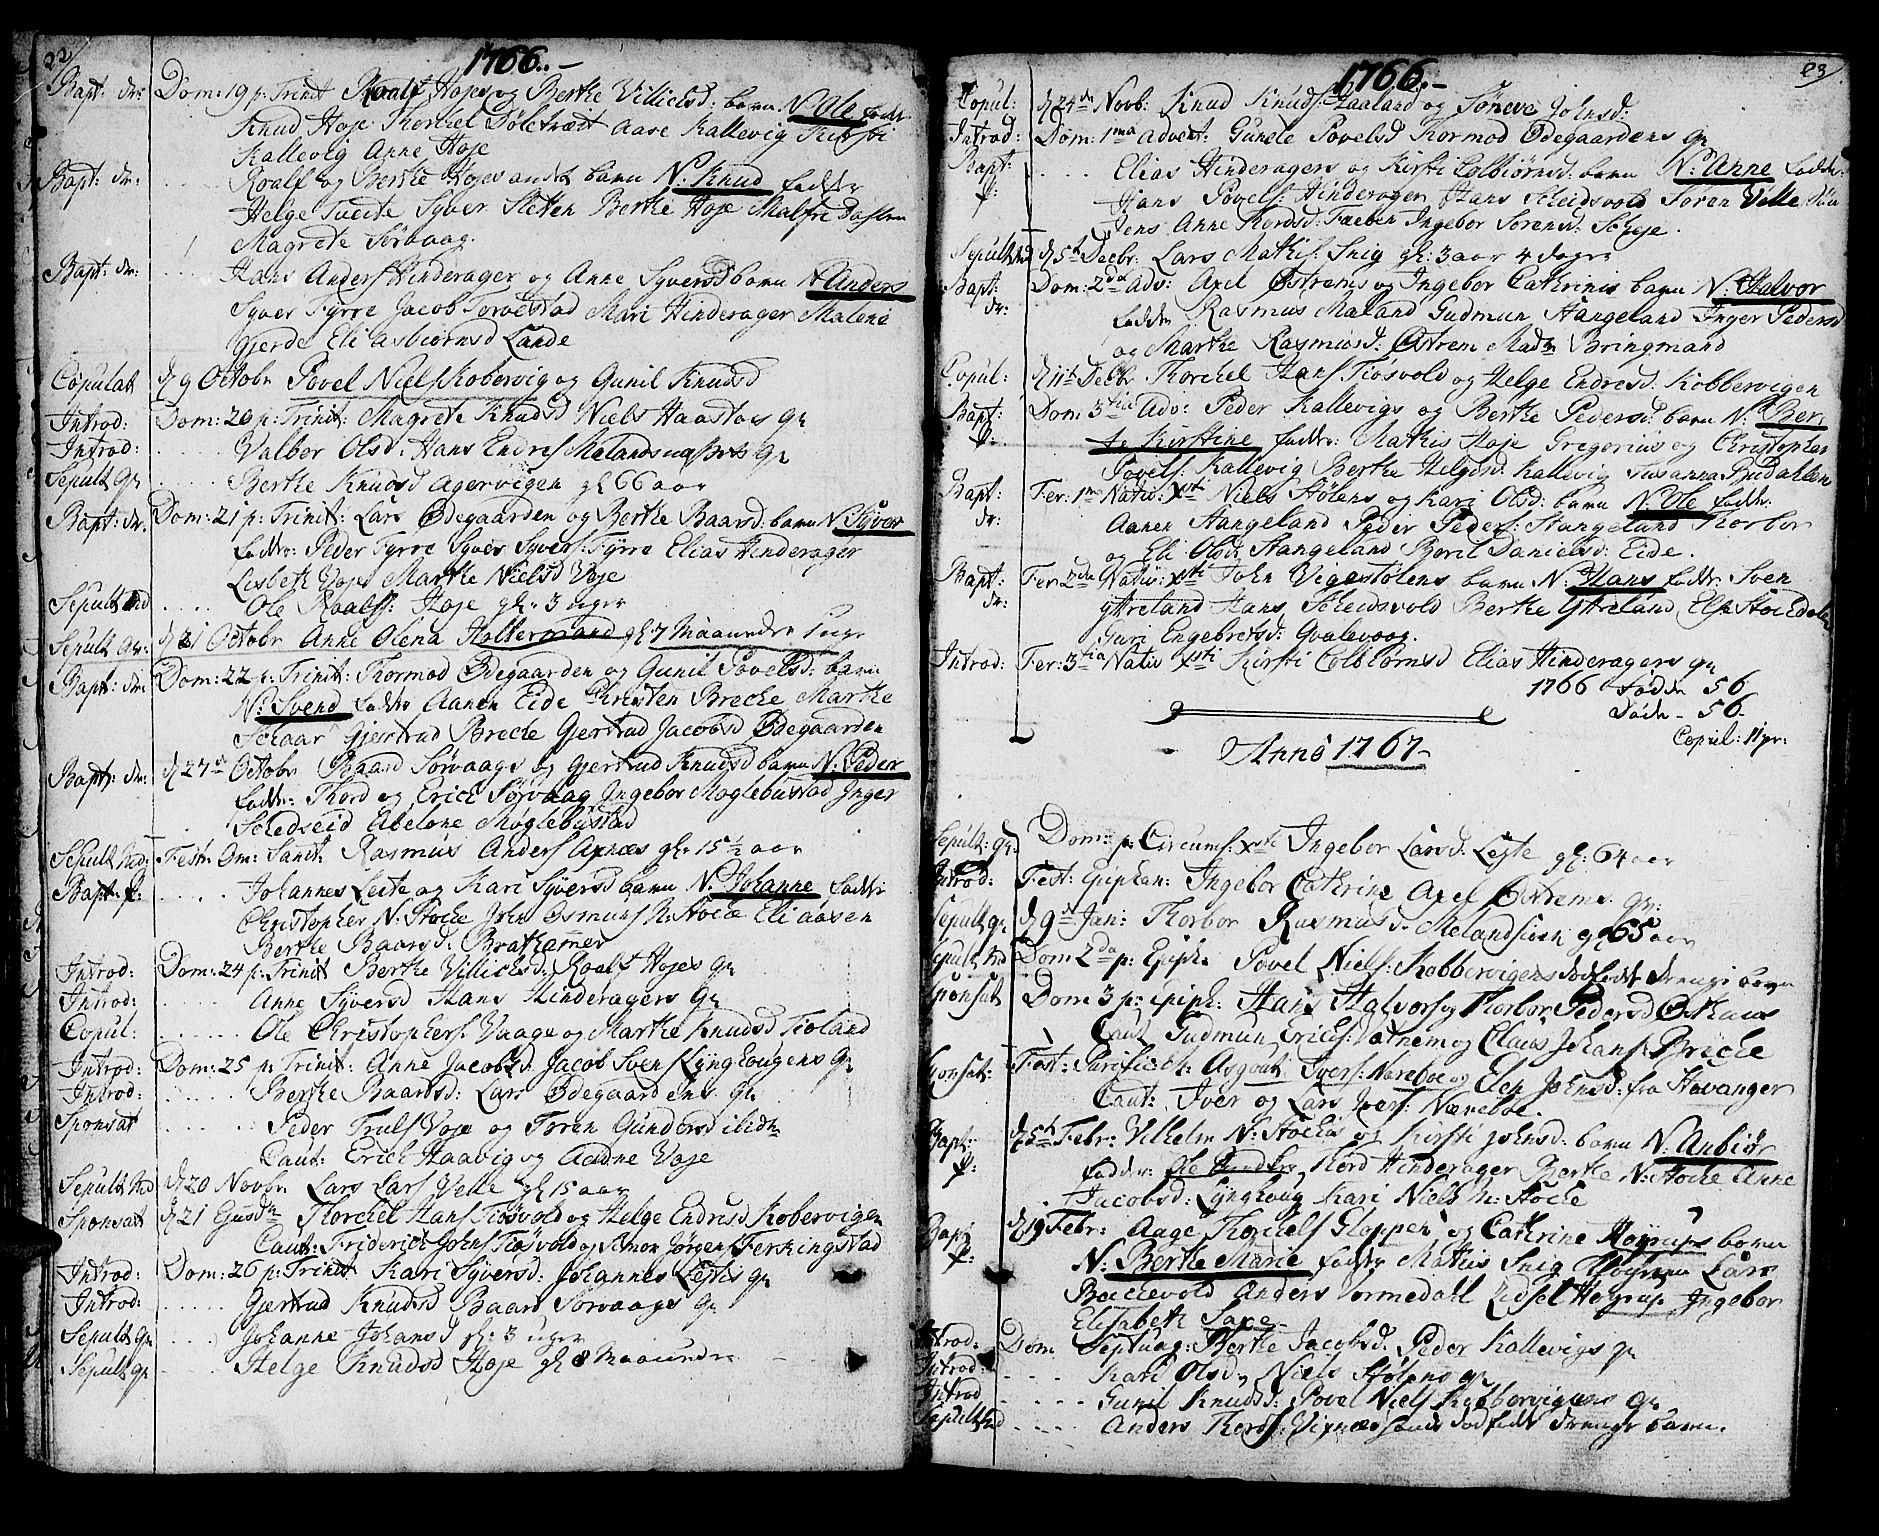 22
1766.
Bapt: dr: Dom: 19 p: Trinit Roalf Hojes og Berthe Villichsd: barn N. Ole fadr:
Knud Hoje Thorchel Döletvært Aase Kallevig Kirsti
Kallevig Anne Hoje
Bapt: dr: .... Roalf og Berthe Hojes andet barn N. Knud fadder
Helge Tveite Syver Sleten Berthe Hoje Malfri
Magrete Sørvaag.
Bapt: dr: .... Hans Anders Hinderager og Anne Syversd barn N Anders
Syver Fyrre Jacob Torvestad Mari Hinderager Malene
Gjerde Eli Asbiørnsd Lande
Copulat d 9 Octobr Povel Niels Kobervig og Gunil Knudsd
Introd: Dom: 20 p: Trinit: Magrete Knudsd Niels Haastøes qv
Introd: .... Valbor Olsd: Hans Endres qv
Sepult qv .... Berthe Knudsd Agervigen gl 66 aar
Bapt: dr. Dom: 21 p: Trinit: Lars Ødegaarden og Berthe Baarsd: barn N Syver
faddr: Peder Fyrre Syver Syvers: Fyrre Elias Hinderager
Lisbeth Voje Marthe Nielsd Voje
Sepult .... Ole Roalfs: Hoje gl: 3 uger
Sepult qv: d 21 Octobr Anne Olena gl 7 Maaneder 1 uge
Bapt: dr: Dom: 22 p: Trinit: Thormod Ødegaarden og Gunil Povelsd: barn
N. Svend faddr Aanen Eide Christen Breche Marthe
Schaar Gjertrud Breche Gjertrud Jacobsd Ødegaarden
Bapt: dr: d 27de Octobr Baard Sørvaags og Gjertrud Knudsd barn N. Peder
faddr: Thord og Erich Sørvaag Ingebor Moglebustad Inger
Schedseid Abelone Moglebustad
Sepult Festo Om: Sanct: Rasmus Anders gl: 15 1/2 aar
Bapt: p: .... Johannes Leite og Kari Syversd barn N. Johanne fadder
Christopher N. Stoche John Osmuns N. Stoche Eli Aasen
Berthe Baarsd: Brathamer
Introd: Dom: 24 p: Trinit Berthe Villichsd: Roalf Hojes qv
Introd: .... Anne Syversd Hans Hinderagers qv
Copul: .... Ole Christophers Vaage og Marthe Knudsd
Introd: Dom: 25 p: Trinit: Anne Jacobsd Jacob Svens Lynghougens qv
Introd: .... Berthe Baardsd: Lars Ødegaardens qv
Sponsat .... Peder Truls Voje og Toren Gundersd ibid
Caut: Erich Haavig og Aadne Voje
Sepult d 20 Novbr Lars Lars Velle gl 15 aar
Sponsat d 21 Ejusd Thorchel Hans Tiøsvold og Helge Endresd Kobervigen
Caut: Friderich Johns Tiøsvold og Simon Jørgens Ferkingstad
Introd: Dom: 26 p: Trinit Kari Syversd: Johannes Lejtes qv
Introd: .... Gjertrud Knudsd Baard Sørvaages qv
Sepult qv .... Johanne Johansd gl: 3 uger
Sepult qv .... Helge Knudsd Hoje gl 8 Maaneder
23
1766.
Copul: d 24de Novb: Knud Knuds Haaland og Joneva Johnsd:
Introd: Dom: 1ma Advent: Gunele Povelsd Thormod Ødegaardens qv
Bapt: p: .... Elias Hinderagers og Kirsti Colbiørnsd: barn N: Anne faddr:
Hans Povels: Hinderager Hans Scheidsvold Soren Velle
Jens Anne Thordsd: Faeben Ingebor Sorensd: Scheje.
Sepult d 5t Decbr: Lars Mathis: Snig gl: 3 aar 4 dager
Bapt: dr: Dom: 2da Adv: Axel Østrems og Ingebor Cathrinis barn N: Halvor
faddr Rasmus Maland Gudmun Hangeland Inger Pedersd
og Marthe Rasmusd: Østrem Mad Bringmand
Copul: d 11t Decbr Thorchel Hans Tiøsvold og Helge Endresd: Kobbervigen
Bapt: p: Dom: 3tia Adv: Peder Kallevigs og Berthe Pedersd: barn N: Ber
te Kirstine faddr: Mathis Hoje Gregorius og Christopher
Povels: Kallevig Berthe Helgesd: Kallevig Susanna Bredahlen
Bapt: dr: Fer: 1ma Nativ: Xsti Niels Stølens og Kari Olsd: barn N: Ole faddr:
Aanen Hangeland Peder Peders: Hangeland Thorbor
og Eli Olsdr Hangeland Boril Danielsd: Eide.
Bapt: dr: Fer: 2da Nativ: Xsti John Vigestølens barn N: Hans faddr: Sven
Yttreland Hans Scheidsvold Berthe Yttreland Else Stoledalen
Guri Engebretsd: Qvalevaag.
Introd: Fer: 3tia Nativ Xsti Kirsti Colbiørnsd Elias Hinderagers qv
1766 Fødde 56
Døde - 56
Copul: 11 pr:
Anno 1767
Sepult: qv: Dom: p: Circumс: Xsti Ingebor Larsd: Lejte gl: 64 aar
Introd: Fest: Epiphan: Ingebor Cathrine Axel Østrems qv:
Sepult qv d 9d Jan: Thorbor Rasmusd: gl 65 aar
Sepult Dom 2da p: Epiph: Povel Niels: Kobbervigens dødfødt drenge barn
Sponsat Dom 3 p: Epiph: Hans Halvors og Thorbor Pedersd Østhuus
Caut Gudmun Erichs: Vatnem og Claus Johans: Breche
Consat: Fest: Purificat: Asgout Ivers: Næreboe og Elen Johnsd: fra Stavanger
Caut: Iver og Lars Ivers: Næreboe.
Bapt: p: d 5t Febr: Vilhelm N: Stochs og Kirsti Johnsd: barn N: Anbiør
fadder: Ole Thord Hinderager Berthe N: Stoche Anne
Jacobsd: Lynghoug Kari Niels N: Stoche
Bapt p: d 19 Febr: Aage Thorchels Gloppen og Cathrine Høyrups barn
N: Berthe Marie fadder Mathis Snig Lars
Bachevold Anders Tormedahl Zidsel Hoyrup Ingebor
Elisabeth Saxe.
Introd: Dom Septuag: Berthe Jacobsd: Peder Kallevigs qv
Introd: .... Kari Olsd Niels Stølens qv
Introd .... Gunil Knudsd: Povel Niels Kobbervigens qv
Sepult .... Anders Thords: Vignæs dødfødt drenge barn.